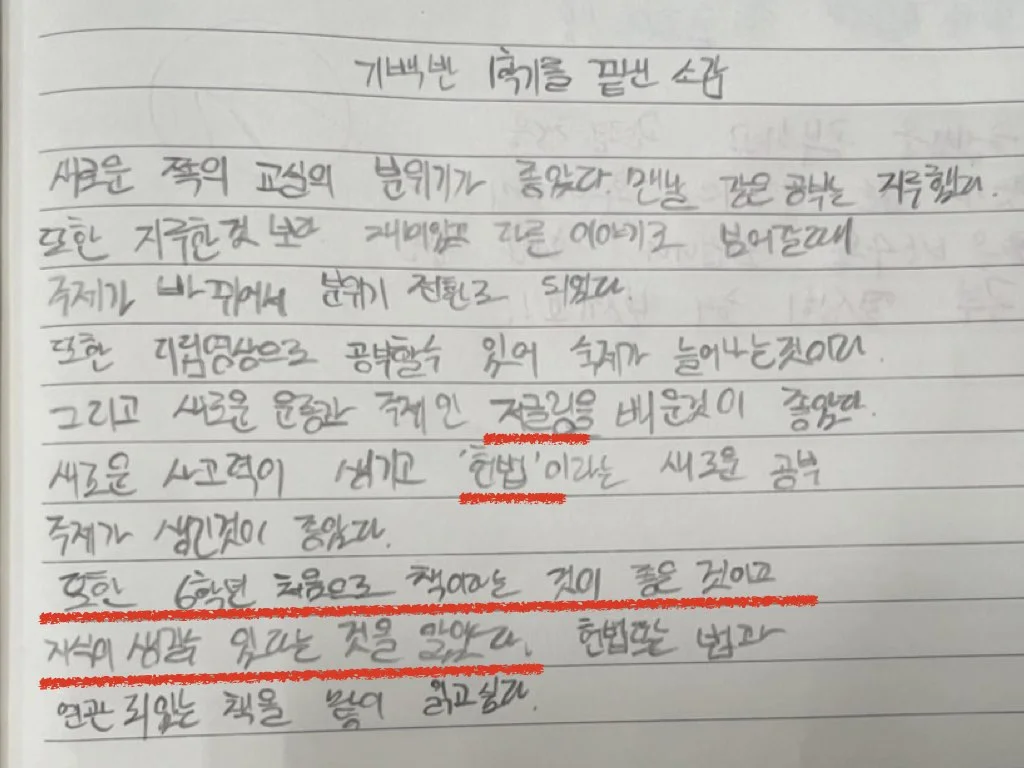 기백반 1학기를 끝낸 소감
새로운 쪽의 교실의 분위기가 좋았다. 맨날 같은 공부는 지루했다.
또한 지루한것 보다 재미있고 다른 이야기로 넘어갈때
주제가 바뀌어서 분위기 전환로 되었다.
또한 디립영상으로 공부할수 있어 숙제가 늘어나는것이다.
그리고 새로운 운동과 주제인 저글링을 배운것이 좋았다.
새로운 사고력이 생기고 '헌법'이라는 새로운 공부
주제가 생긴것이 좋았다.
또한 6학년 처음으로 책이라는 것이 좋은 것이고
지식이 생길수 있다는 것을 알았다. 헌법또는 법과
연관되있는 책을 많이 읽고싶다.